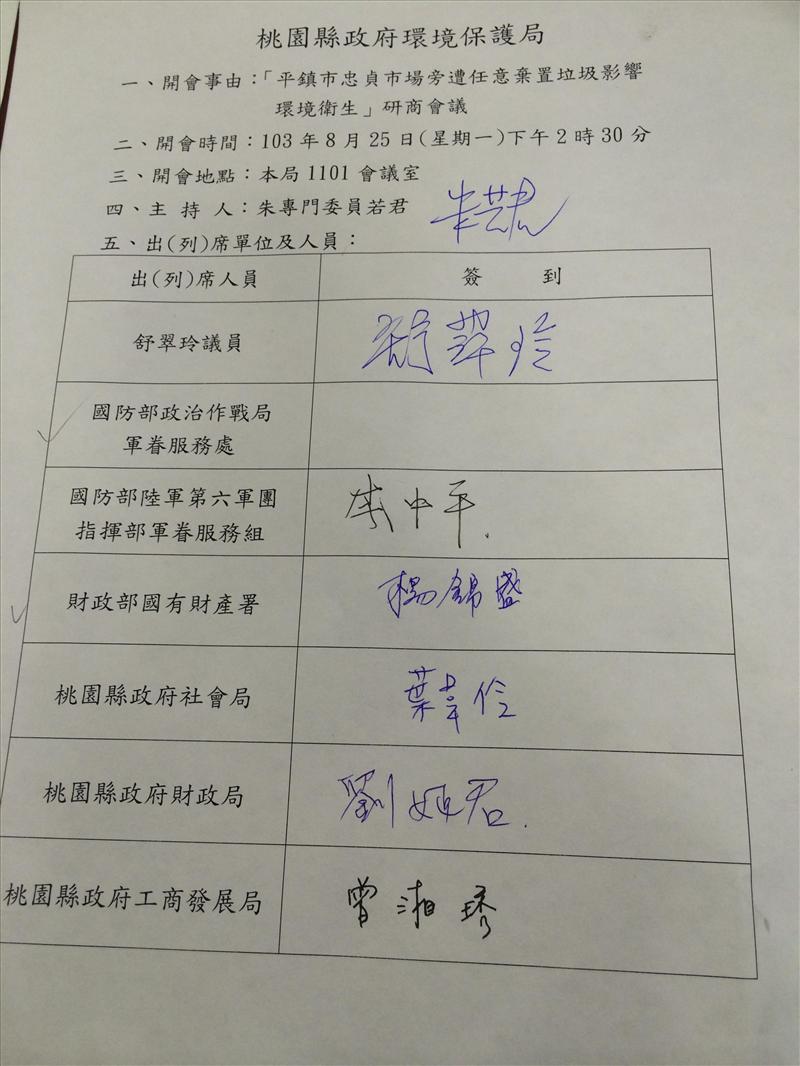 桃園縣政府環境保護局
一、開會事由：「平鎮市忠貞市場旁遭任意棄置垃圾影響
環境衛生」研商會議
二、開會時間：103年8月25日(星期一)下午2時30分
三、開會地點：本局1101會議室
四、主 持 人：朱專門委員若君
五、出(列)席單位及人員：
出(列)席人員 簽 到
舒翠玲議員 舒翠玲
國防部政治作戰局
軍眷服務處
國防部陸軍第六軍團
指揮部軍眷服務組
中平
財政部國有財產署 楊錦盛
桃園縣政府社會局 葉韋伶
桃園縣政府財政局 劉 君
桃園縣政府工商發展局 曾湘琇